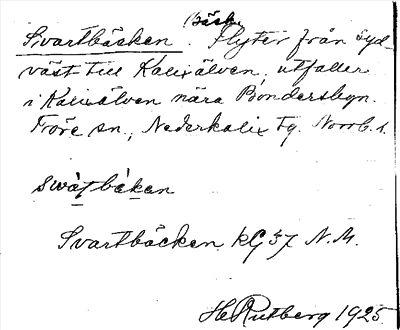 (bäck)
Svartbäcken. Flyter från syd-
väst till Kalixälven, utfaller
i Kalixälven nära Bondersbyn.
Töre sn., Nederkalix tg. Norrb. l.
swàţbákan
Svartbäcken kG 37 N.M.
H. Rutberg 1925